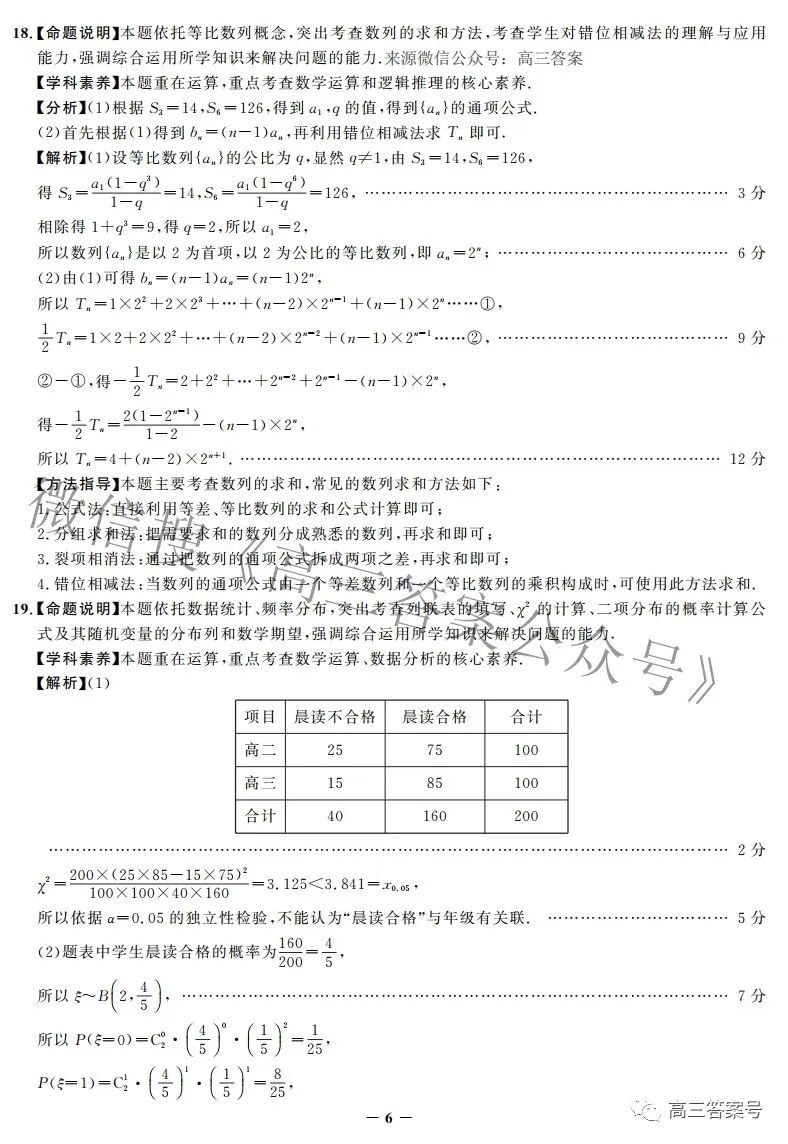 18.【命题说明】本题依托等比数列概念,突出考查数列的求和方法,考查学生对错位相减法的理解与应用
能力,强调综合运用所学知识来解决问题的能力.来源微信公众号：高三答案
【学科素养】本题重在运算,重点考查数学运算和逻辑推理的核心素养.
【分析】(1)根据 S₃=14,S₆=126,得到 a₁,q 的值,得到{aₙ}的通项公式.
(2)首先根据(1)得到 bₙ=(n-1)aₙ,再利用错位相减法求 Tₙ 即可.
【解析】(1)设等比数列{aₙ}的公比为 q,显然 q≠1,由 S₃=14,S₆=126,
得 S₃=a₁(1-q³)/(1-q)=14,S₆=a₁(1-q⁶)/(1-q)=126, …… 3 分
相除得 1+q³=9,得 q=2,所以 a₁=2,
所以数列{aₙ}是以 2 为首项,以 2 为公比的等比数列,即 aₙ=2ⁿ; …… 6 分
(2)由(1)可得 bₙ=(n-1)aₙ=(n-1)2ⁿ,
所以 Tₙ=1×2²+2×2³+…+(n-2)×2ⁿ⁻¹+(n-1)×2ⁿ……①,
1/2 Tₙ=1×2+2×2²+…+(n-2)×2ⁿ⁻²+(n-1)×2ⁿ⁻¹……②, …… 9 分
②-①,得-1/2 Tₙ=2+2²+…+2ⁿ⁻²+2ⁿ⁻¹-(n-1)×2ⁿ,
得-1/2 Tₙ=2(1-2ⁿ⁻¹)/(1-2)-(n-1)×2ⁿ,
所以 Tₙ=4+(n-2)×2ⁿ⁺¹. …… 12 分
【方法指导】本题主要考查数列的求和,常见的数列求和方法如下:
1.公式法:直接利用等差、等比数列的求和公式计算即可;
2.分组求和法:把需要求和的数列分成熟悉的数列,再求和即可;
3.裂项相消法:通过把数列的通项公式拆成两项之差,再求和即可;
4.错位相减法:当数列的通项公式由一个等差数列和一个等比数列的乘积构成时,可使用此方法求和.
19.【命题说明】本题依托数据统计、频率分布,突出考查列联表的填写、χ² 的计算、二项分布的概率计算公
式及其随机变量的分布列和数学期望,强调综合运用所学知识来解决问题的能力.
【学科素养】本题重在运算,重点考查数学运算、数据分析的核心素养.
【解析】(1)
项目 晨读不合格 晨读合格 合计
高二 25 75 100
高三 15 85 100
合计 40 160 200
…… 2 分
χ²=200×(25×85-15×75)²/(100×100×40×160)=3.125<3.841=x₀.₀₅,
所以依据 α=0.05 的独立性检验,不能认为“晨读合格”与年级有关联. …… 5 分
(2)题表中学生晨读合格的概率为160/200=4/5,
所以 ξ~B(2,4/5), …… 7 分
所以 P(ξ=0)=C₂⁰·(4/5)⁰·(1/5)²=1/25,
P(ξ=1)=C₂¹·(4/5)¹·(1/5)¹=8/25,
— 6 —
微信搜《高三答案公众号》
高三答案号